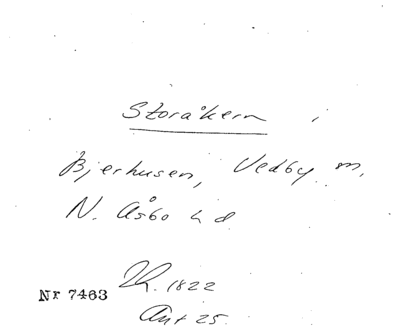 Storåkern
Bjerhusen, Vedby m,
N. Åsbo hd
Nr 7463
Th. 1822
Ant 25